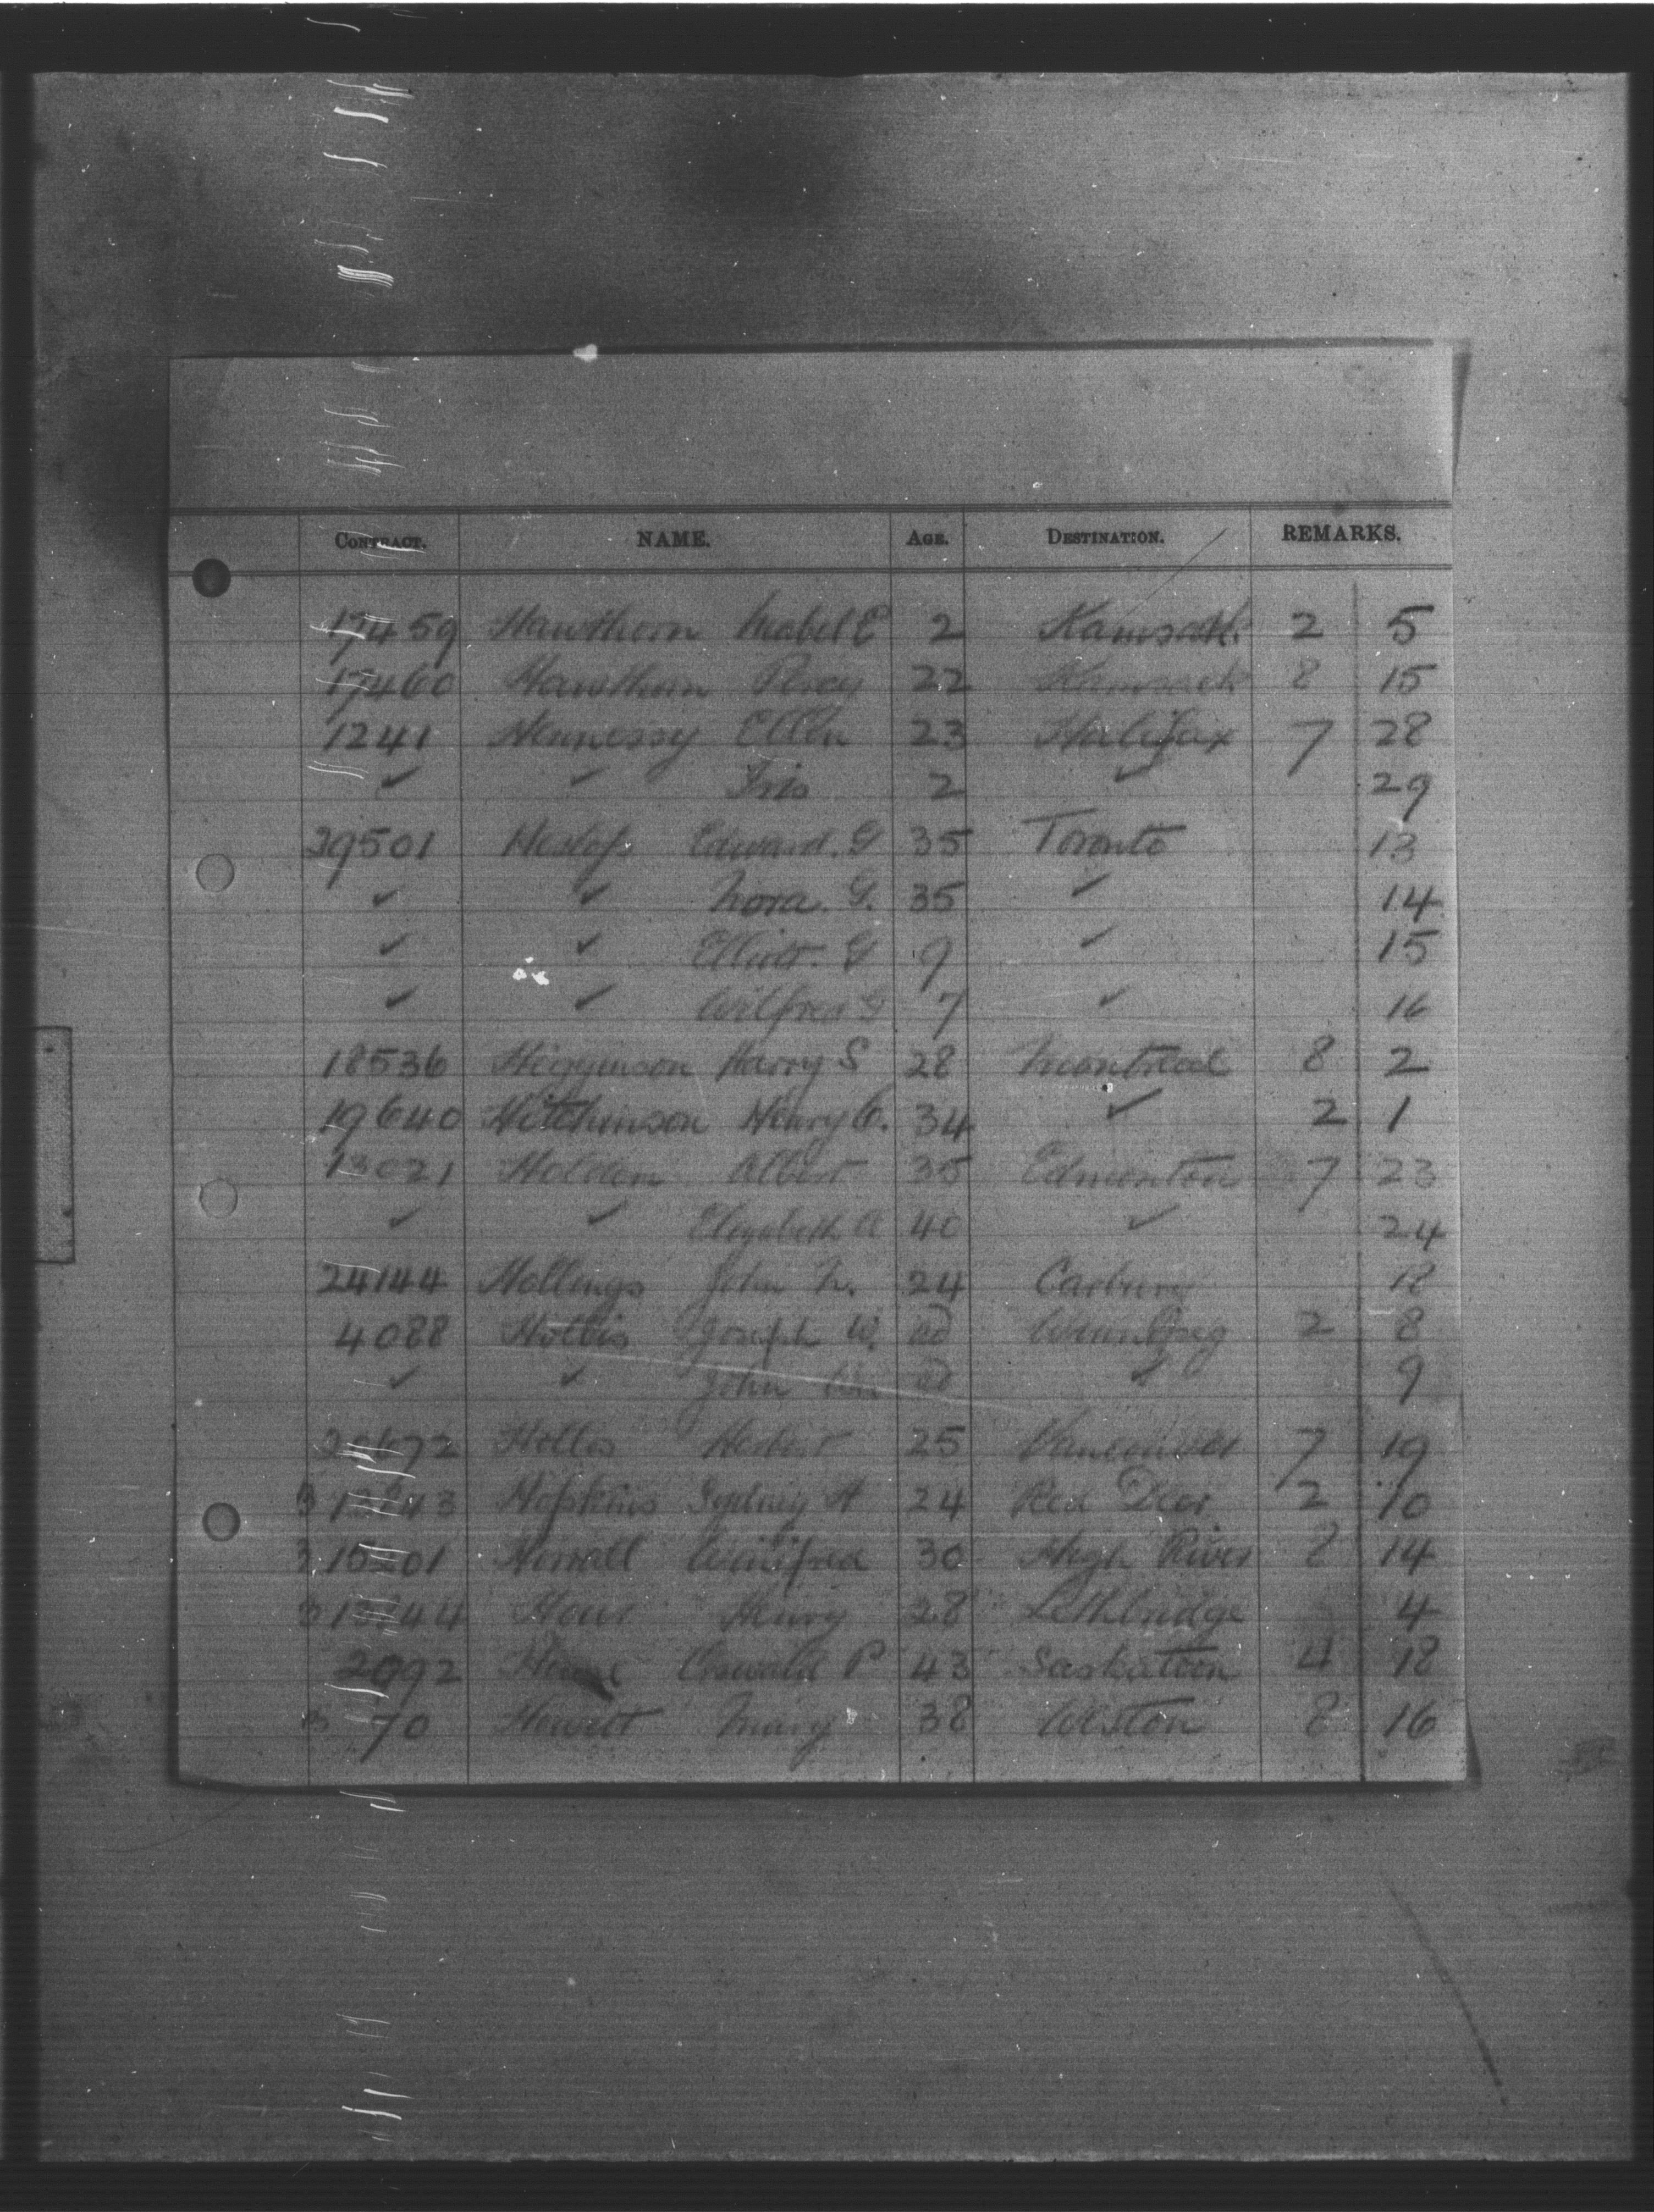 CONTRACT. NAME. AGE. DESTINATION. REMARKS.
17459 Hawthorn Mabel E 2 Kamsack 2 5
17460 Hawthorn Percy 22 Kamsack 8 15
1241 Hennessy Ellen 23 Halifax 7 28
✓ ✓ Iris 2 ✓ 29
29501 Heslop Edward. G 35 Toronto 13
✓ ✓ Nora. G. 35 ✓ 14
✓ ✓ Elliott. G 9 ✓ 15
✓ ✓ Wilfred G 7 ✓ 16
18536 Higginson Harry S 28 Montreal 8 2
19640 Hitchinson Henry C. 34 ✓ 2 1
13021 Holden Albert 35 Edmonton 7 23
✓ ✓ Elizabeth A 40 ✓ 24
24144 Hollings John N. 24 Carbury 18
4088 Hollis Joseph W. ad Winnipeg 2 8
✓ ✓ John Wm ad ✓ 9
Hollis Herbert 25 Vancouver 7 19
Hopkins Sydney A 24 Red Deer 2 10
Horrall Winifred 30 High River 8 14
Hour Henry 28 Lethbridge 4
2092 House Oswald P 43 Saskatoon 4 18
3 70 Howett Mary 38 Weston 8 16